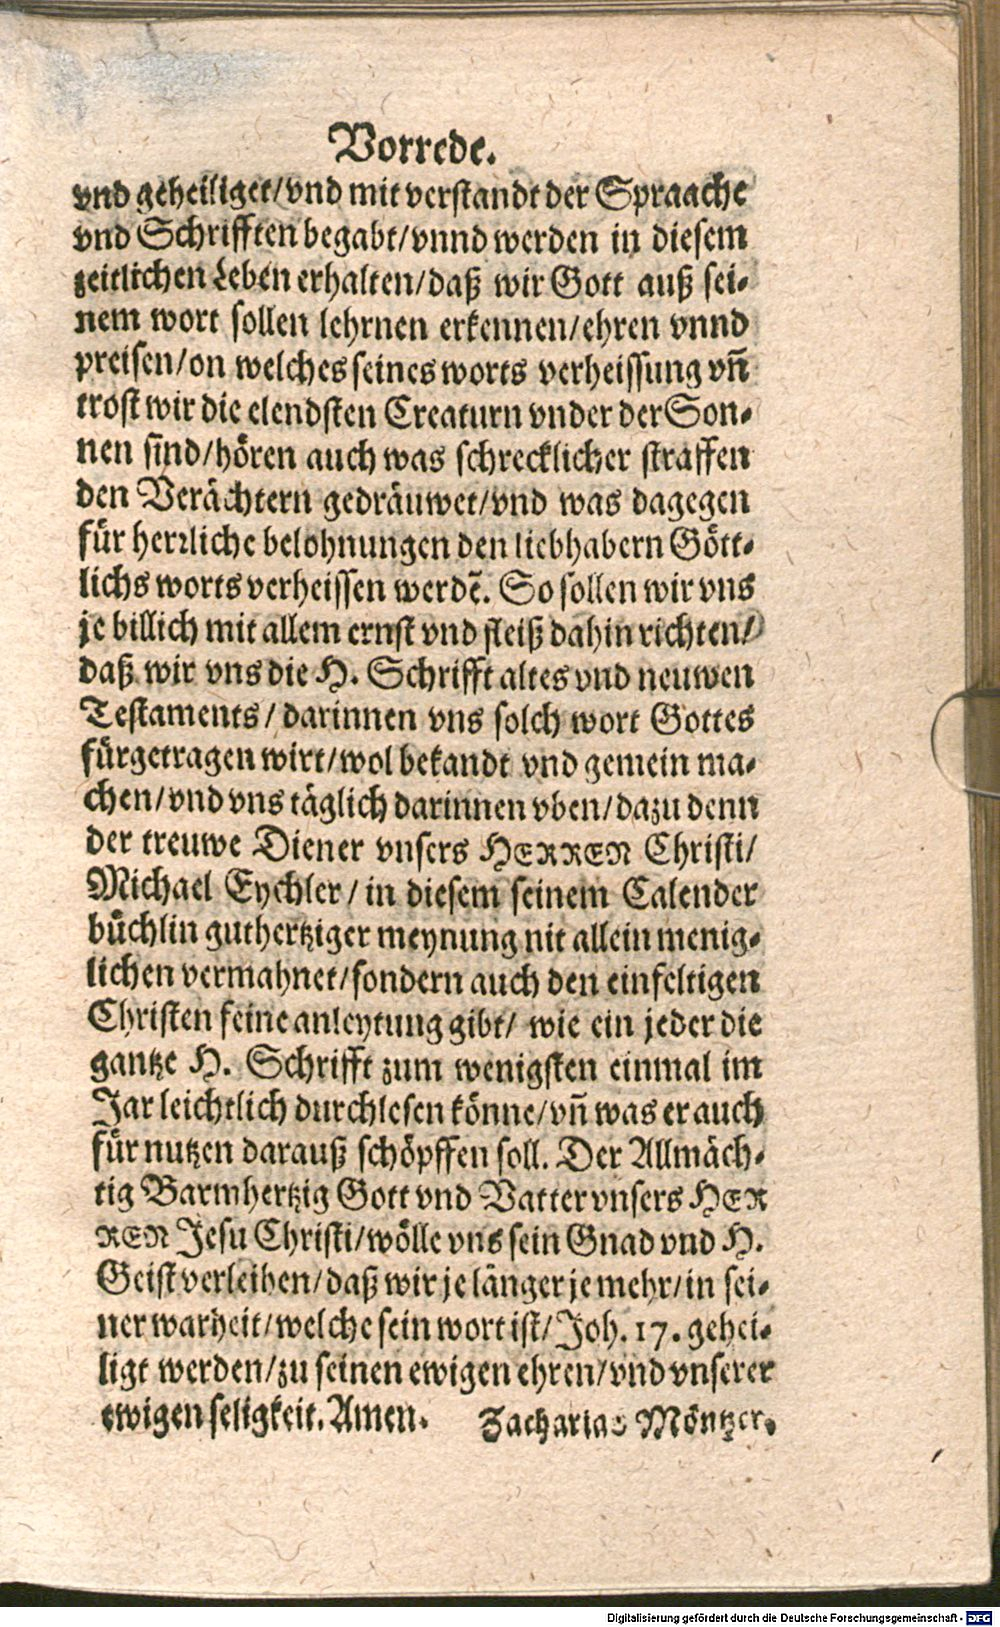 Vorrede.
vnd geheiliget/vnd mit verstandt der Spraache
vnd Schrifften begabt/vnnd werden in diesem
zeitlichen Leben erhalten/daß wir Gott auß sei-
nem wort sollen lehrnen erkennen/ehren vnnd
preisen/on welches seines worts verheissung vñ
trost wir die elendsten Creaturn vnder der Son-
nen sind/hören auch was schrecklicher straffen
den Verächtern gedräuwet/vnd was dagegen
für herrliche belohnungen den liebhabern Gött-
lichs worts verheissen werdẽ. So sollen wir vns
je billich mit allem ernst vnd fleiß dahin richten/
daß wir vns die H. Schrifft altes vnd neuwen
Testaments/darinnen vns solch wort Gottes
fürgetragen wirt/wol bekandt vnd gemein ma-
chen/vnd vns täglich darinnen vben/dazu denn
der treuwe Diener vnsers HERREN Christi/
Michael Eychler/in diesem seinem Calender
büchlin guthertziger meynung nit allein menig-
lichen vermahnet/sondern auch den einfeltigen
Christen feine anleytung gibt/ wie ein jeder die
gantze H. Schrifft zum wenigsten einmal im
Jar leichtlich durchlesen könne/vñ was er auch
für nutzen darauß schöpffen soll. Der Allmäch-
tig Barmhertzig Gott vnd Vatter vnsers HER
REN Jesu Christi/wölle vns sein Gnad vnd H.
Geist verleihen/daß wir je länger je mehr/in sei-
ner warheit/welche sein wort ist/Joh. 17. gehei-
ligt werden/zu seinen ewigen ehren/vnd vnserer
ewigen seligkeit. Amen. Zacharias Möntzer.
Digitalisierung gefördert durch die Deutsche Forschungsgemeinschaft - DFG